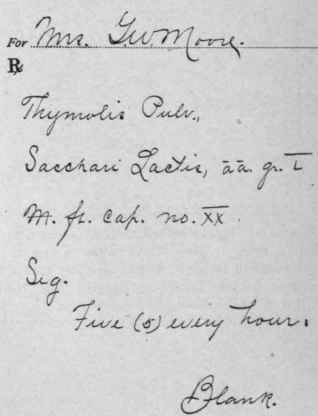 For Mrs. G.W. Moore.
℞
Thymolis Pulv.,
Sacchari Lactis, āā. gr. L
M. ft. cap. no. XX.
Sig.
Five (5) every hour.
Blank.